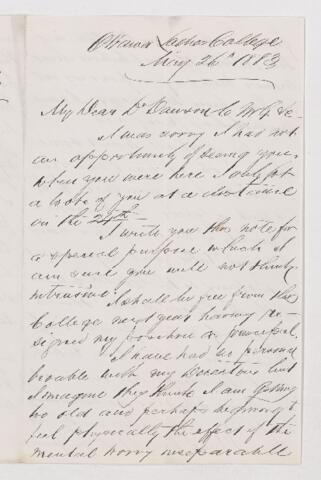 Ottawa Ladies College
May 26th 1883
My Dear Dr Dawson C.M.G. &c
I was sorry I had not
an opportunity of seeing you,
when you were here I only got
a look of you at a distance
on the 24th
I write you this note for
a special purpose which I
am sure you will not think
intrusive I shall be free from this
College next year having re-
signed my position as principal.
I have had no personal
trouble with my Directors but
I imagine they think I am getting
too old and perhaps beginning to
feel physically the effect of the
mental worry inseparable